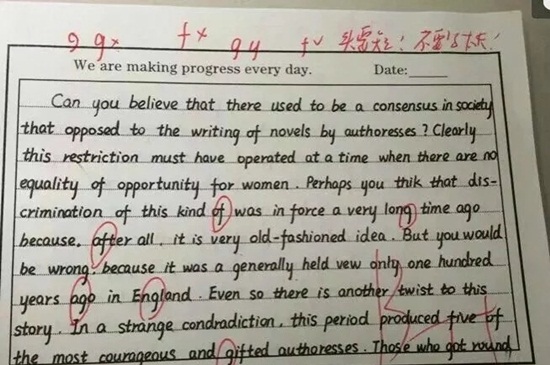 g gx fx gy fv 头要短！不要写太长！
We are making progress every day. Date:
Can you believe that there used to be a consensus in society
that opposed to the writing of novels by authoresses ? Clearly
this restriction must have operated at a time when there are no
equality of opportunity for women . Perhaps you thik that dis-
crimination of this kind of was in force a very long time ago
because, after all , it is very old-fashioned idea . But you would
be wrong, because it was a generally held vew only one hundred
years ago in England . Even so there is another twist to this
story . In a strange condradiction , this period produced five of
the most courageous and gifted authoresses . Those who got round